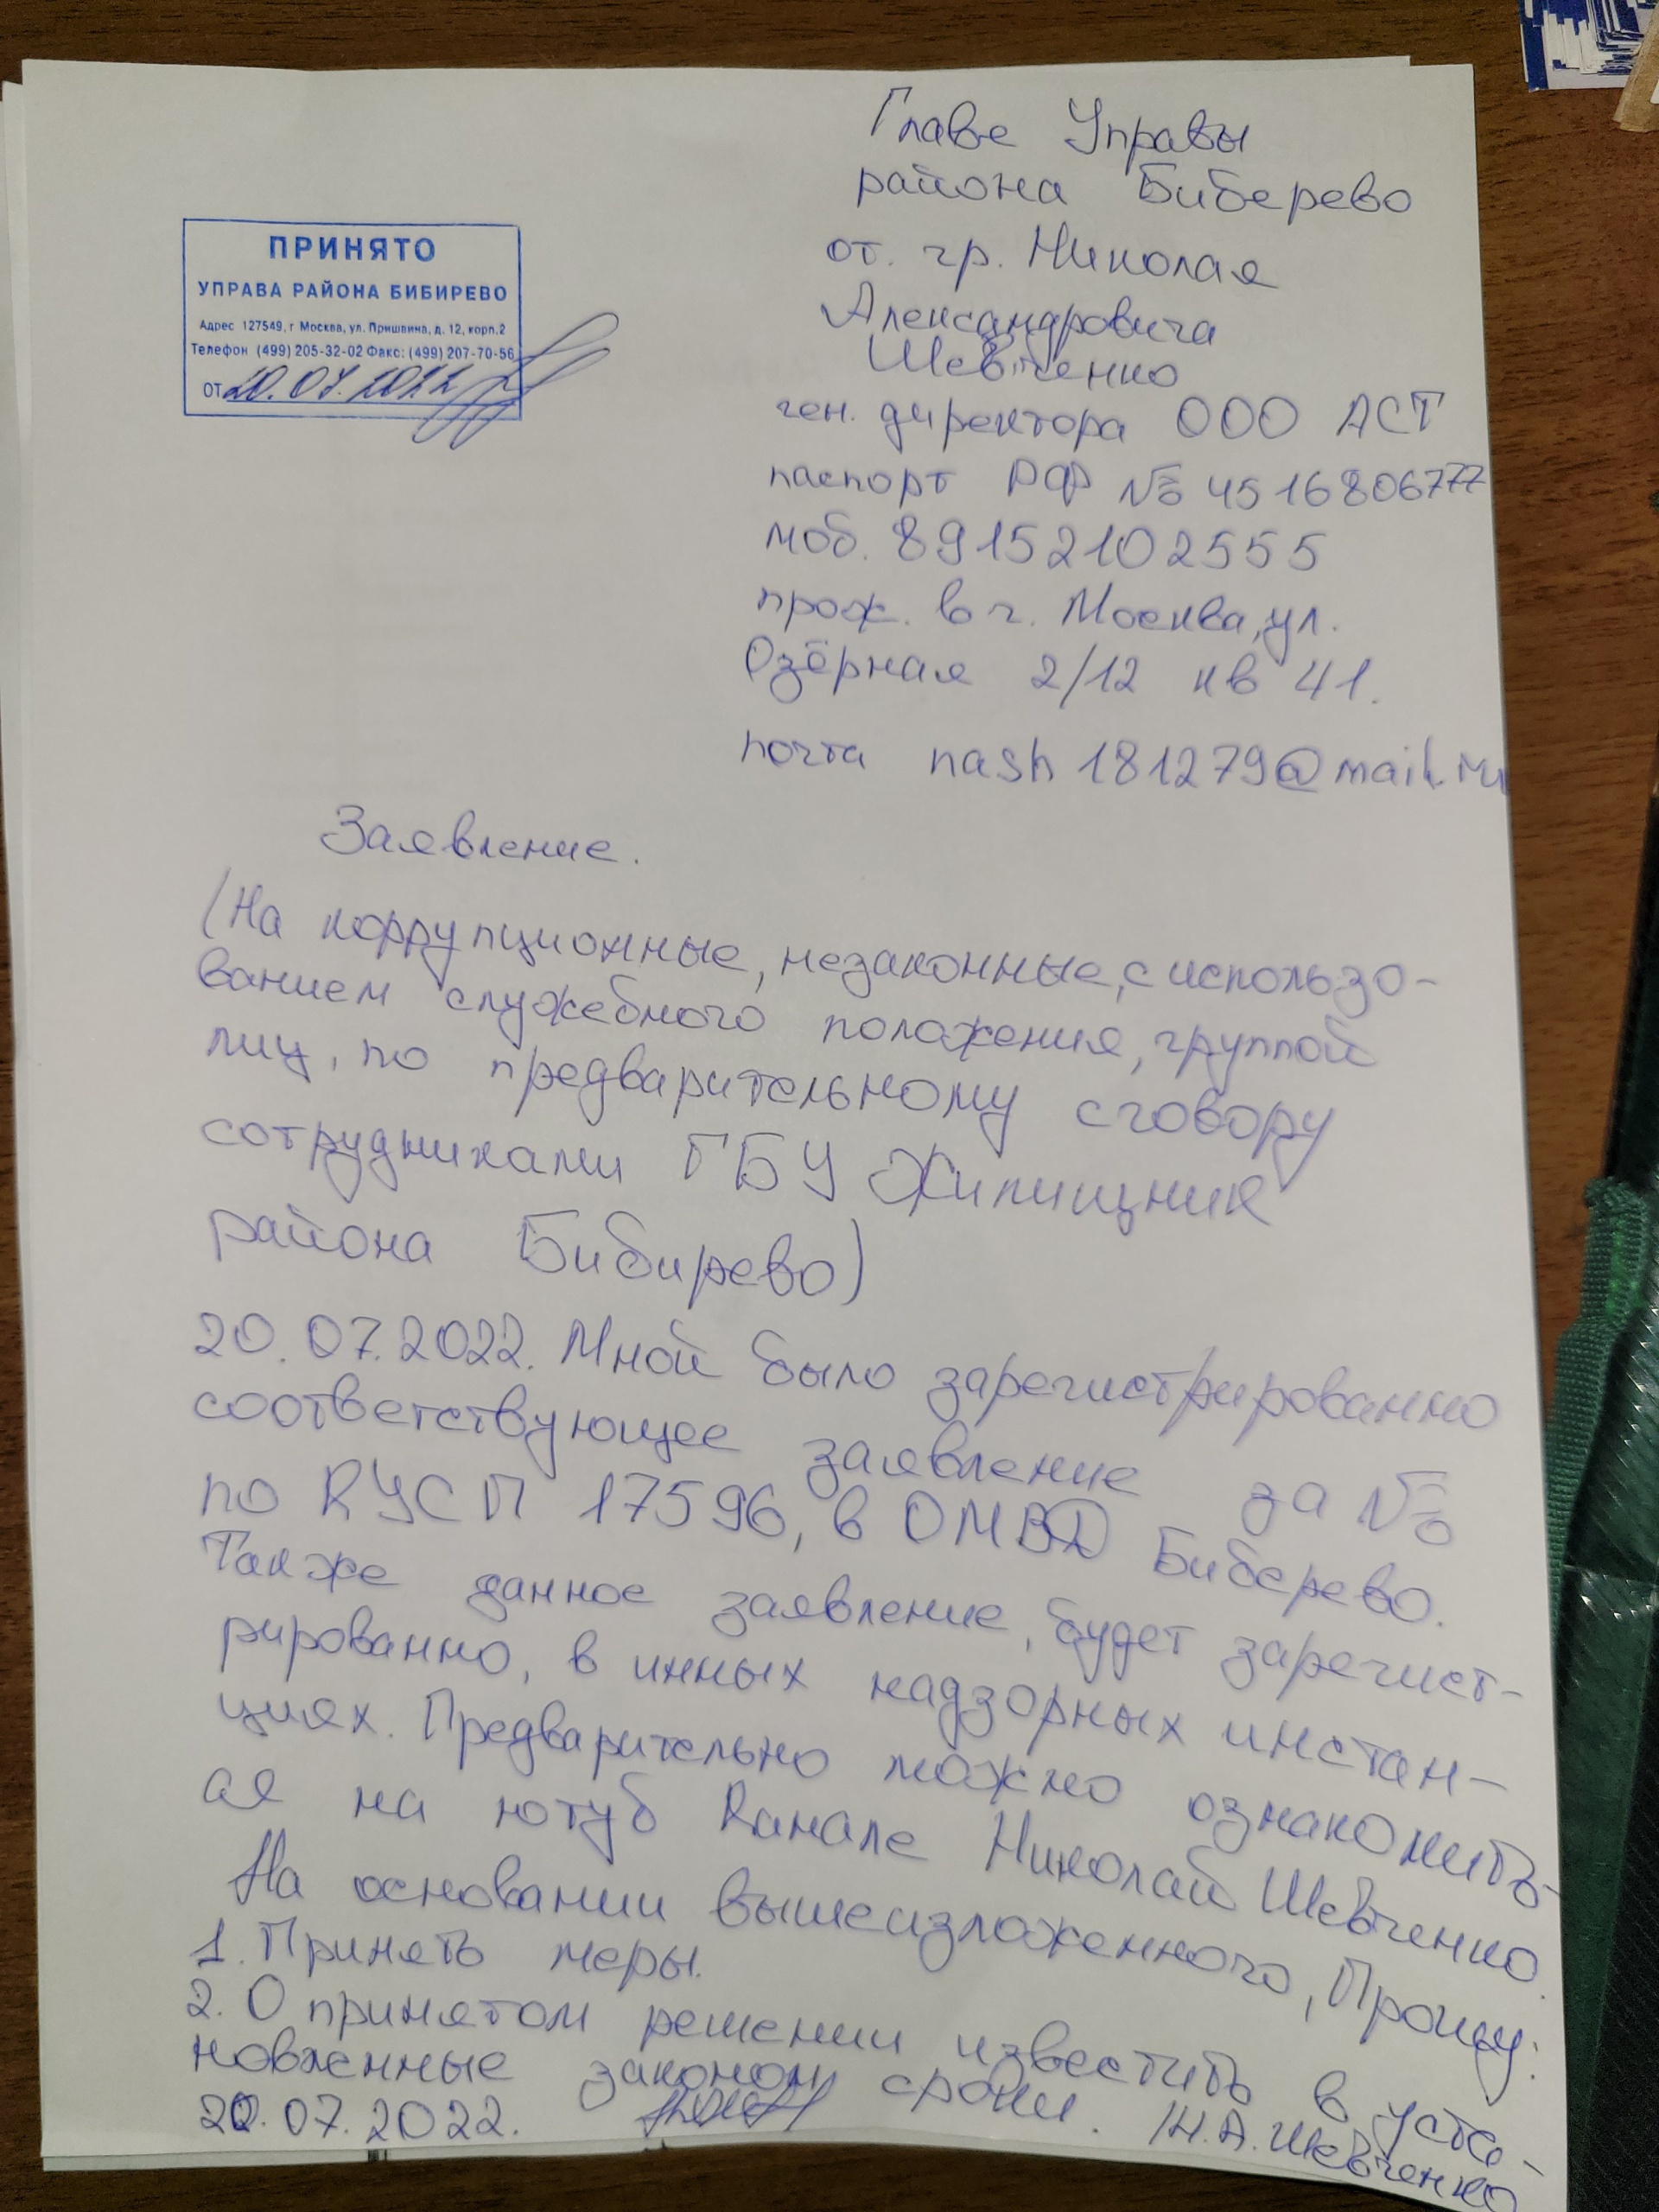 Главе Управы
района Биберево
от. гр. Николая
Александровича
Шевченко
ген. директора ООО АСТ
паспорт РФ № 4516806777
моб. 89152102555
прож. в г. Москва, ул.
Озёрная 2/12 кв 41.
почта nash181279@mail.ru
ПРИНЯТО
УПРАВА РАЙОНА БИБИРЕВО
Адрес 127549, г Москва, ул. Пришвина, д. 12, корп.2
Телефон (499) 205-32-02 Факс: (499) 207-70-56
от 20.07.2022
Заявление.
(На коррупционные, незаконные, с использо-
ванием служебного положения, группой
лиц, по предварительному сговору
сотрудниками ГБУ Жилищник
района Бибирево)
20.07.2022. Мной было зарегистрированно
соответствующее заявление за №
по КУСП 17596, в ОМВД Биберево.
Также данное заявление, будет зарегист-
рированно, в инных надзорных инстан-
циях. Предварительно можно ознакомить-
ся на ютуб канале Николай Шевченко.
На основании вышеизложенного, Прошу:
1. Принять меры.
2. О принятом решении известить в уста-
новленные законом сроки.
20.07.2022. /Н.А. Шевченко